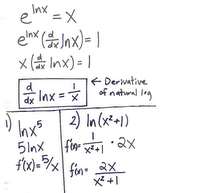 e^lnx = x
e^lnx (d/dx lnx) = 1
x (d/dx lnx) = 1
d/dx lnx = 1/x ← Derivative of natural log
1) lnx^5
5lnx
f'(x) = 5/x
2) ln(x²+1)
f'(x) = 1/x²+1 · 2x
f'(x) = 2x/x²+1